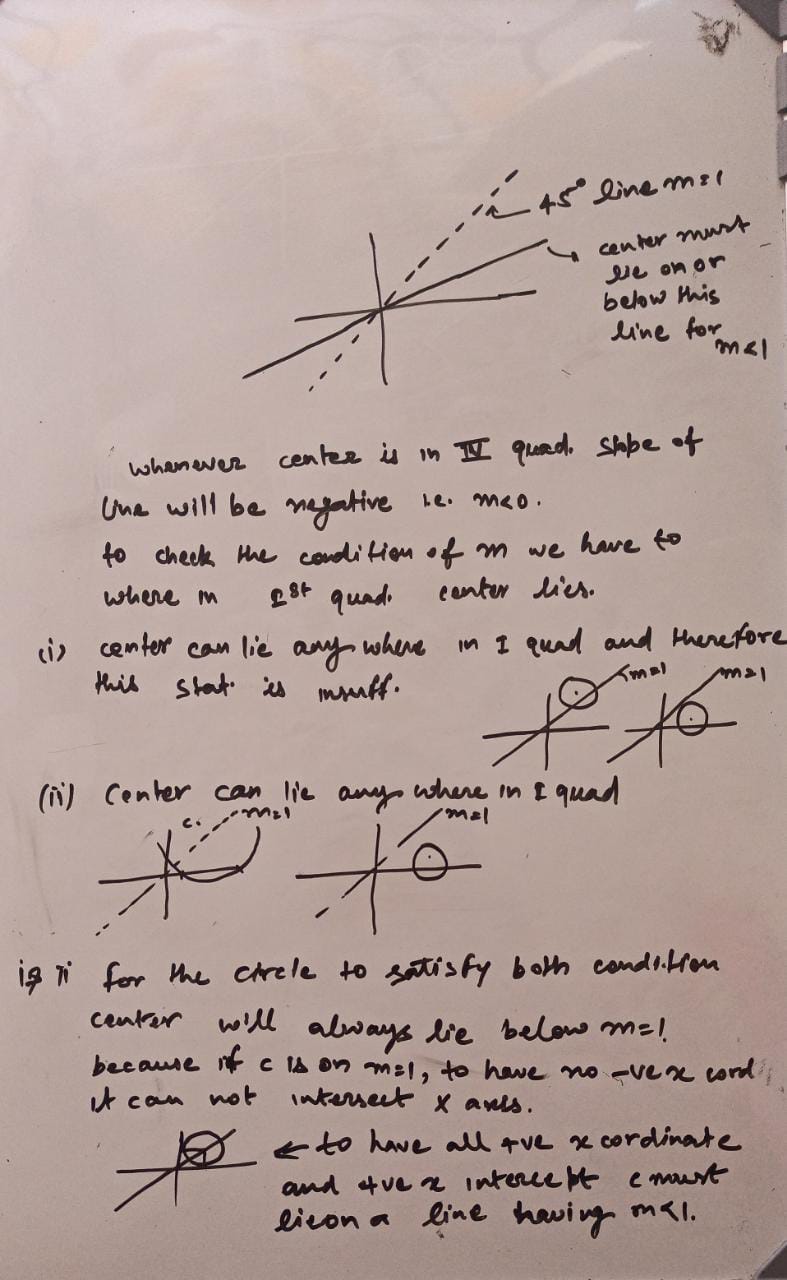 45° line m=1
center must
lie on or
below this
line for
m<1
whenever center is in IV quad. slope of
line will be negative i.e. m<0.
to check the condition of m we have to
where in 1st quad. center lies.
(i) center can lie any where in I quad and therefore
this stat. is insuff.
m=1
m=1
(ii) Center can lie any where in I quad
c.
m=1
m=1
i & ii for the circle to satisfy both condition
center will always lie below m=1
because if c is on m=1, to have no -ve x cord
it can not intersect x axes.
← to have all +ve x cordinate
and +ve x intercept c must
lie on a line having m<1.